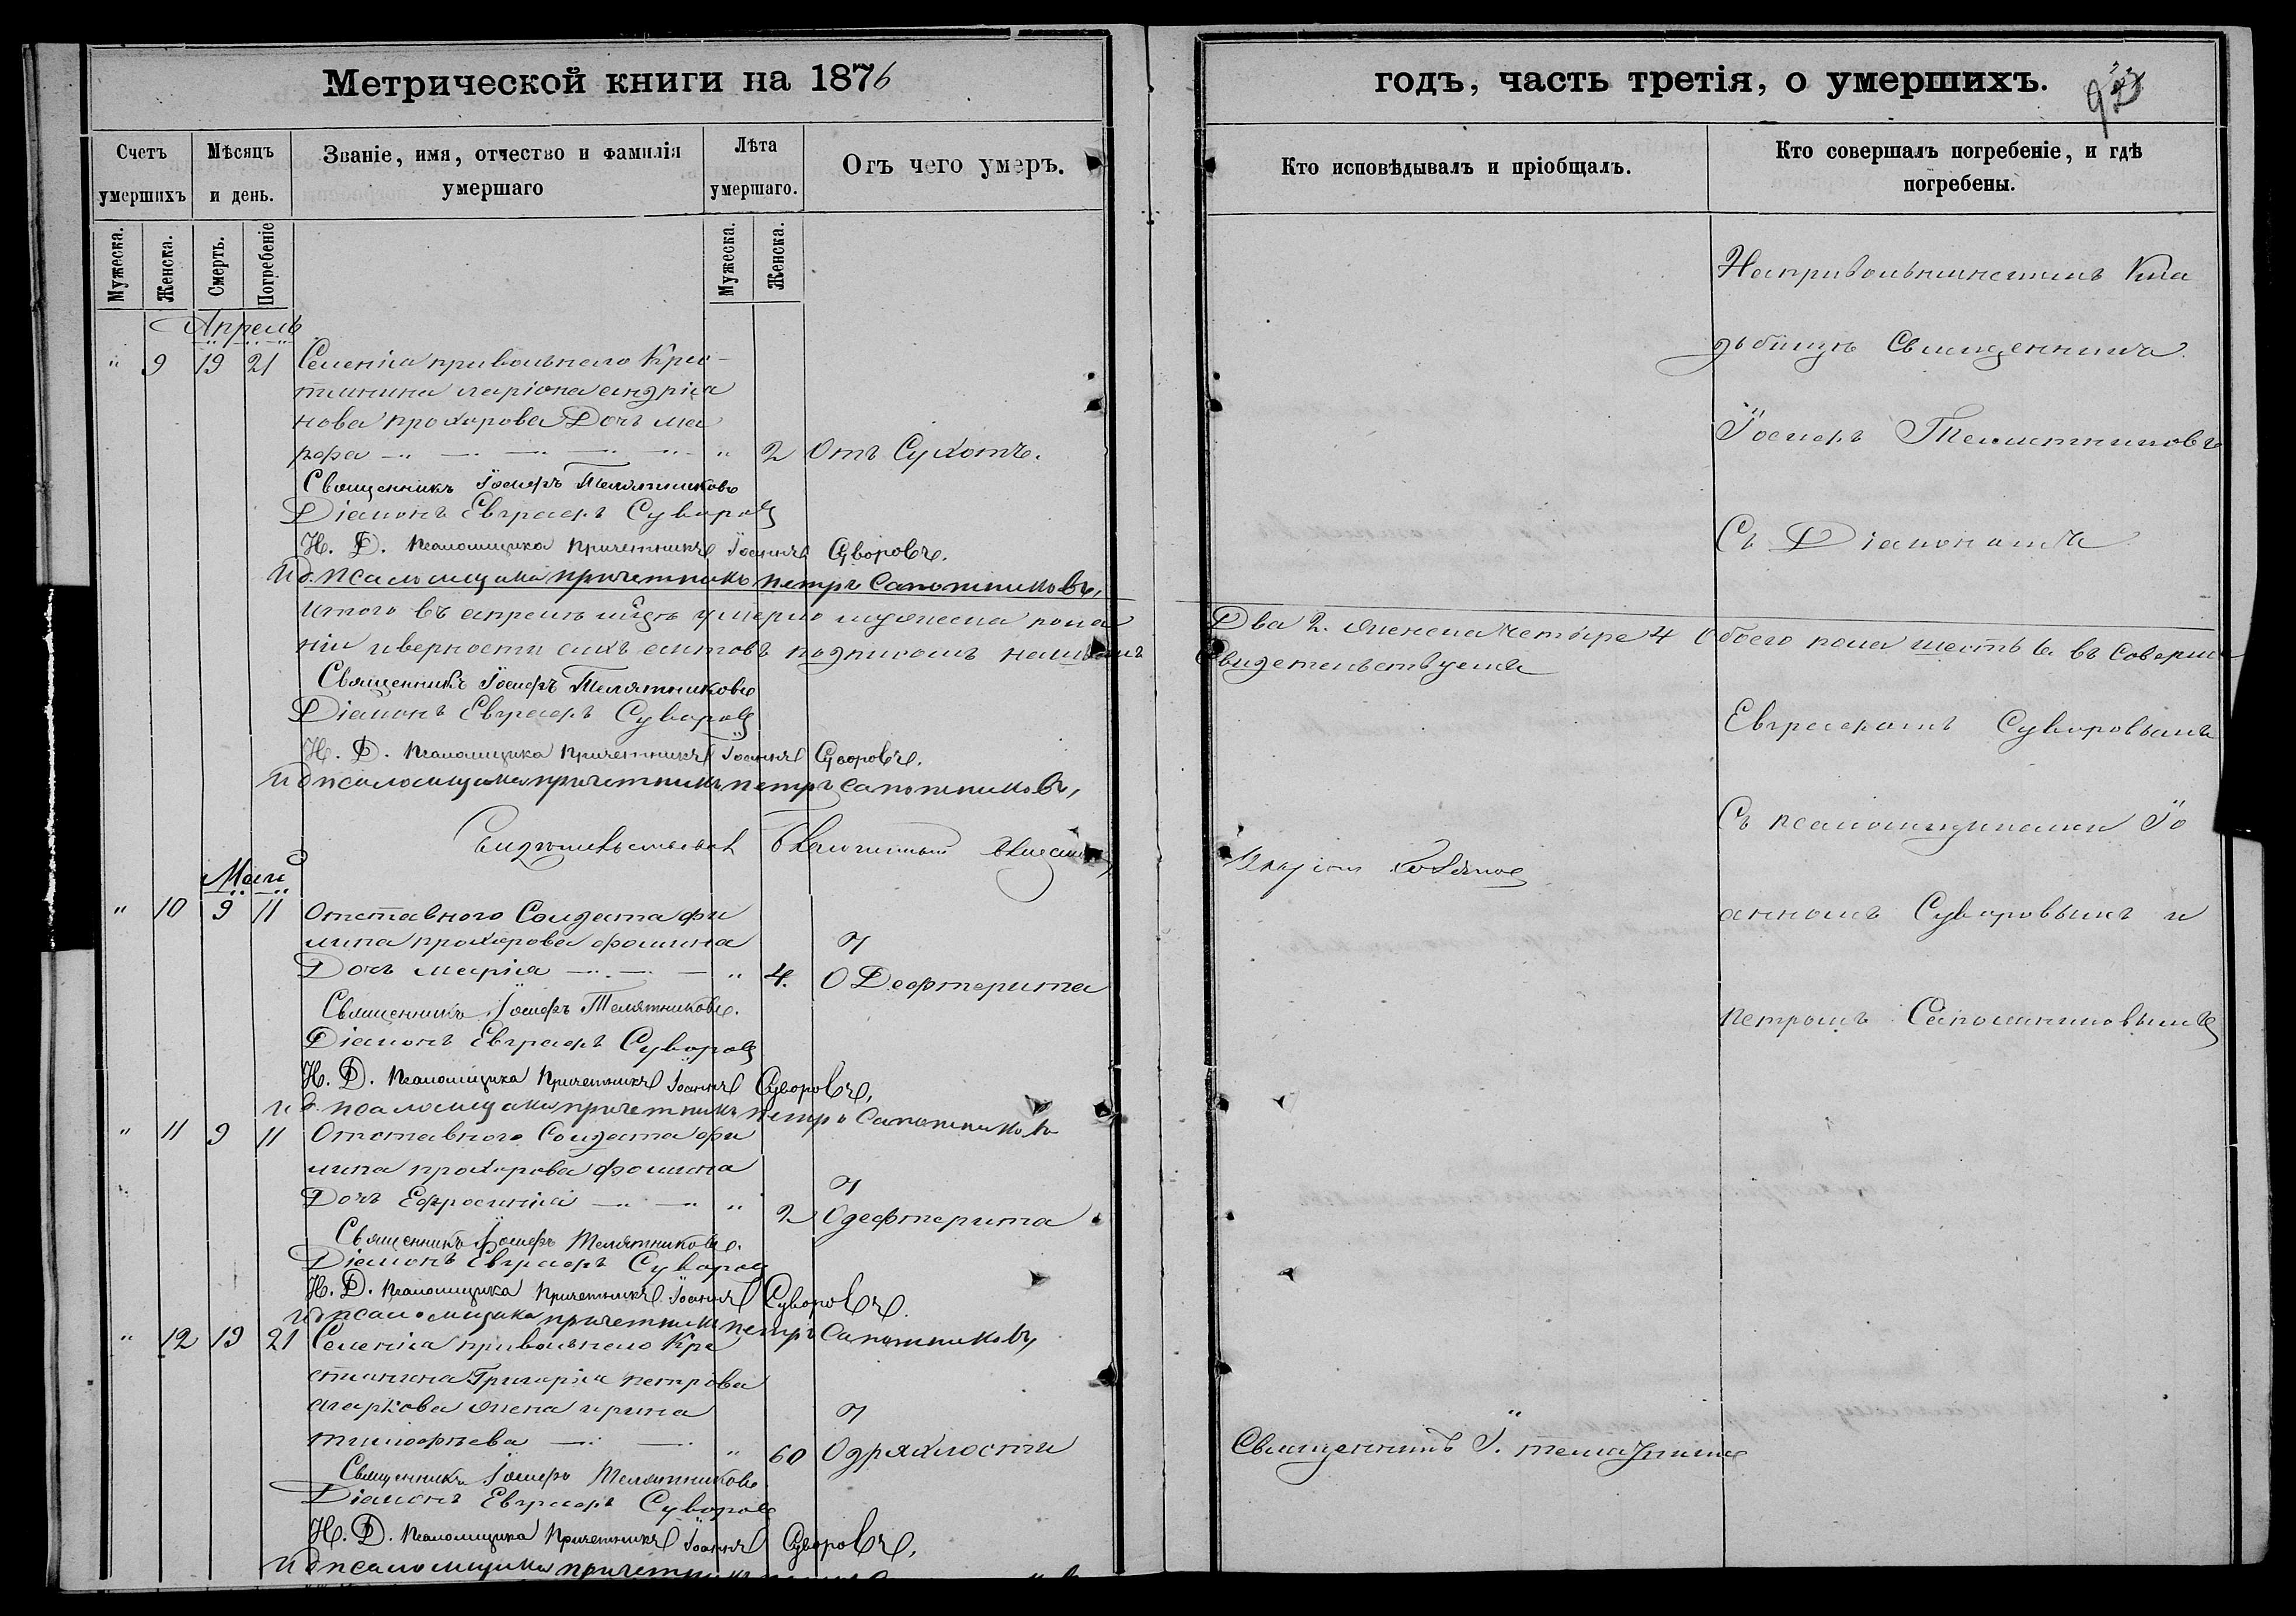 Метрической книги на 1876
Счетъ умершихъ
Мѣсяцъ и день.
Званіе, имя, отчество и фамилія умершаго
Лѣта умершаго.
Отъ чего умеръ.
Мужеска.
Женска.
Смерть.
Погребеніе
Мужеска.
Женска.
Апрель
" 9 19 21 Селенія привольнаго Крес-
тьянина ларіона андрія
нова прохорова Дочь ма
рфа " 2 Отъ Сухотъ.
Священникъ Іосифъ Телятниковъ
Діаконъ Евграфъ Суворовъ
И. Д. Псаломщика Причетникъ Іоаннъ Суворовъ.
И д. псаломщика причетникъ петръ Сапожниковъ,
итого въ апрелѣ мцѣ умерло мужеска пола
ніи и верности сихъ актовъ подписомъ нашимъ
Священникъ Іосифъ Телятниковъ
Діаконъ Евграфъ Суворовъ
И. Д. Псаломщика Причетникъ Іоаннъ Суворовъ.
И д псаломщика причетникъ петръ сапожниковъ,
Май
" 10 9 11 Отставного Солдата фи
липа прохорова фомина
Дочь марія " 4. От Дефтерита
Священникъ Іосифъ Телятниковъ.
Діаконъ Евграфъ Суворовъ
И. Д. Псаломщика Причетникъ Іоаннъ Суворовъ,
и д. псаломщика причетникъ петръ Сапожниковъ
" 11 9 11 Отставного Солдата фи
липа прохорова фомина
Дочь Ефросинія " 2 От дефтерита
Священникъ Іосифъ Телятниковъ.
Діаконъ Евграфъ Суворовъ
И. Д. Псаломщика Причетникъ Іоаннъ Суворовъ.
и д псаломщика причетникъ петръ Сапожниковъ
" 12 19 21 Селенія привольнаго Кре
стьянина Григорія петрова
жена ирина
тимофѣева " 60 От дряхлости
Священникъ Іосифъ Телятниковъ
Діаконъ Евграфъ Суворовъ
И. Д. Псаломщика Причетникъ Іоаннъ Суворовъ,
И д псаломщика причетникъ
годъ, часть третія, о умершихъ.
Кто исповѣдывалъ и пріобщалъ.
Кто совершалъ погребеніе, и гдѣ погребены.
На привольнинскомъ Кла
дбищѣ Священникъ
Іосифъ Телятниковъ
Съ Діакономъ
Два 2. женска четыре 4 обоего пола шесть 6. въ соверше
свидетельствуемъ
Евграфомъ Суворовымъ
Съ псаломщиками Іо
анномъ Суворовымъ и
Петромъ Сапожниковымъ
Священникъ І.